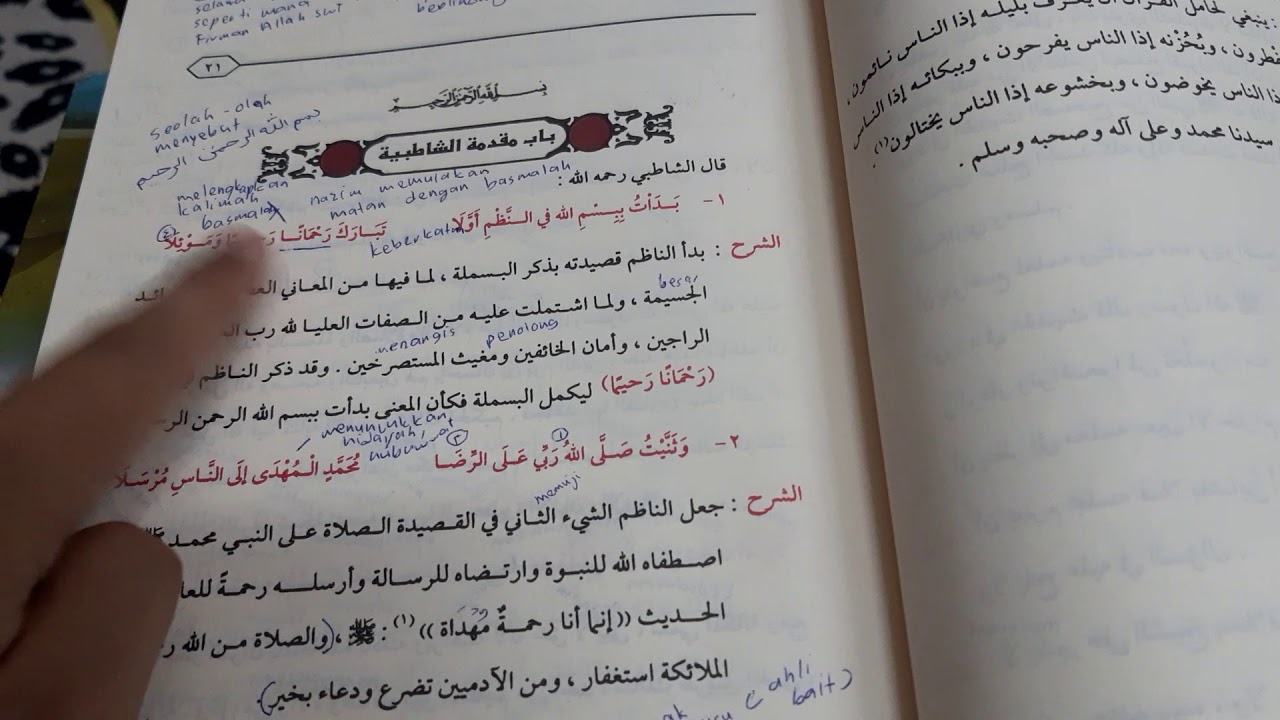 seperti mana
Firman Allah swt
٢١
بسم الله الرحمن الرحيم
باب مقدمة الشاطبية
seolah-olah
menyebut
بسم الله الرحمن الرحيم
melengkapkan
kalimah
basmalah
nazim memulakan
matan dengan basmalah
قال الشاطبي رحمه الله :
١- بَدَأْتُ بِبِسْمِ الله في النَّظْمِ أَوَّلَا تَبَارَكَ رَحْمَانًا وَمَوْئِلَا
keberkatan
الشرح : بدأ الناظم قصيدته بذكر البسملة ، لما فيها من المعاني
besar
الجسيمة ، ولما اشتملت عليه من الصفات العليا لله رب
menangis penolong
الراجين ، وأمان الخائفين ومغيث المستصرخين . وقد ذكر الناظم
(رَحْمَانًا رَحيمًا) ليكمل البسملة فكأن المعنى بدأت ببسم الله الرحمن
menunjukkan
hidayah,
nubuwwat
٢- وَثَنَّيْتُ صَلَّى اللهُ رَبِّي عَلَى الرِّضَا مُحَمَّدٍ الْمُهْدَى إلَى النَّاسِ مُرْسَلَا
memuji
الشرح : جعل الناظم الشيء الثاني في القصيدة الصلاة على النبي محمد
اصطفاه الله للنبوة وارتضاه للرسالة وأرسله رحمةً
الحديث ((إنما أنا رحمةٌ مُهْدَاة))(١) : ﷺ ، (والصلاة من الله
الملائكة استغفار ، ومن الآدميين تضرع ودعاء بخير)
(ahli
bait)
: ينبغي لحامل القرآن أن يعرف بليله إذا الناس نائمون ،
وبحُزْنه إذا الناس يفرحون ، وببكائه إذا الناس
الناس يخوضون ، وبخشوعه إذا الناس يختالون(١).
سيدنا محمد وعلى آله وصحبه وسلم .